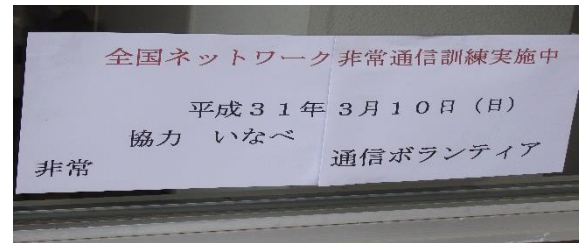 全国ネットワーク非常通信訓練実施中
平成３１年３月１０日（日）
協力　いなべ
非常　通信ボランティア